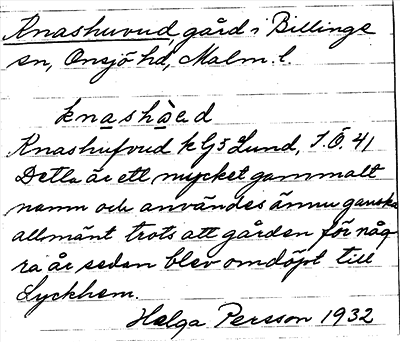 Knashuvud, gård i Billinge
sn, Onsjö hd, Malm. l.
knashàed
Knashufvud kG5 Lund, J.Ö. 41
Detta är ett mycket gammalt
namn och användes ännu ganska
allmänt trots att gården för någ
ra år sedan blev omdöpt till
Lyckhem.
Helga Persson 1932